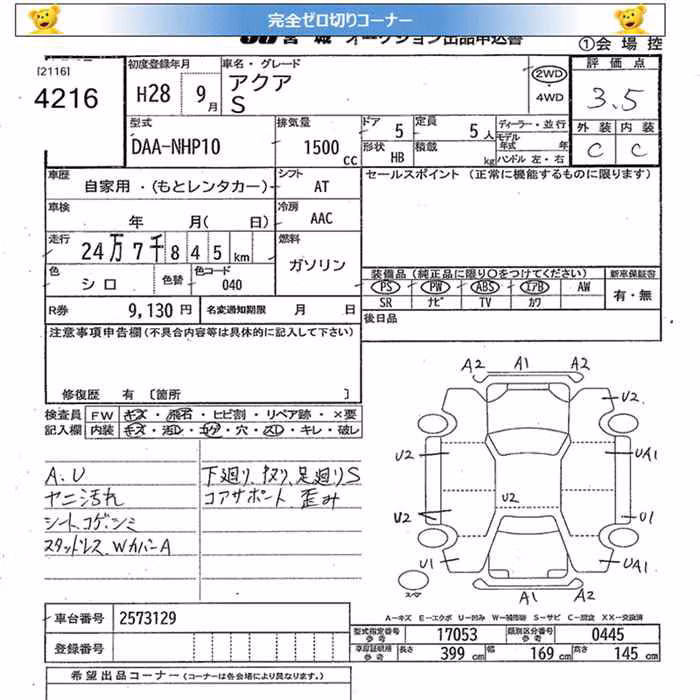 完全ゼロ切りコーナー
JU宮城 オークション出品申込書 ①会場控
[2116]
4216
初度登録年月
H28 9月
車名・グレード
アクア
S
2WD
4WD
評価点
3.5
外装 内装
C C
型式
DAA-NHP10
排気量
1500cc
ドア 5
定員 5人
形状 HB
積載 kg
ディーラー・並行
モデル年式 年
ハンドル 左・右
車歴
自家用・(もとレンタカー)
シフト AT
セールスポイント (正常に機能するものに限ります)
車検 年 月( 日)
冷房 AAC
走行
24万7千845km
燃料
ガソリン
色 シロ
色替
色コード 040
装備品(純正品に限り○をつけてください)
PS PW ABS エアB AW
SR ナビ TV カワ
新車保証書
有・無
R券 9,130円
名変通知期限 月 日
後日品
注意事項申告欄(不具合内容等は具体的に記入して下さい)
修復歴 有 〔箇所 〕
検査員記入欄
FW キズ・飛石・ヒビ割・リペア跡・×要
内装 キズ・汚レ・コゲ・穴・スレ・キレ・破レ
A.U
ヤニ汚れ
シートコゲ.シミ
スタッドレス.WカバーA
下廻り、足廻りS
コアサポート 歪み
A2 A1 A2
U2
U2 UA1
U2
U2 U1
U1 UA1
A1 A2
A-キズ E-エクボ U-凹み W-補修跡 S-サビ C-腐食 XX-交換済
車台番号 2573129
型式指定番号参考 17053
類別区分番号参考 0445
登録番号
車庫証明用参考 長さ 399cm 幅 169cm 高さ 145cm
希望出品コーナー (コーナーは各会場により異なります。)